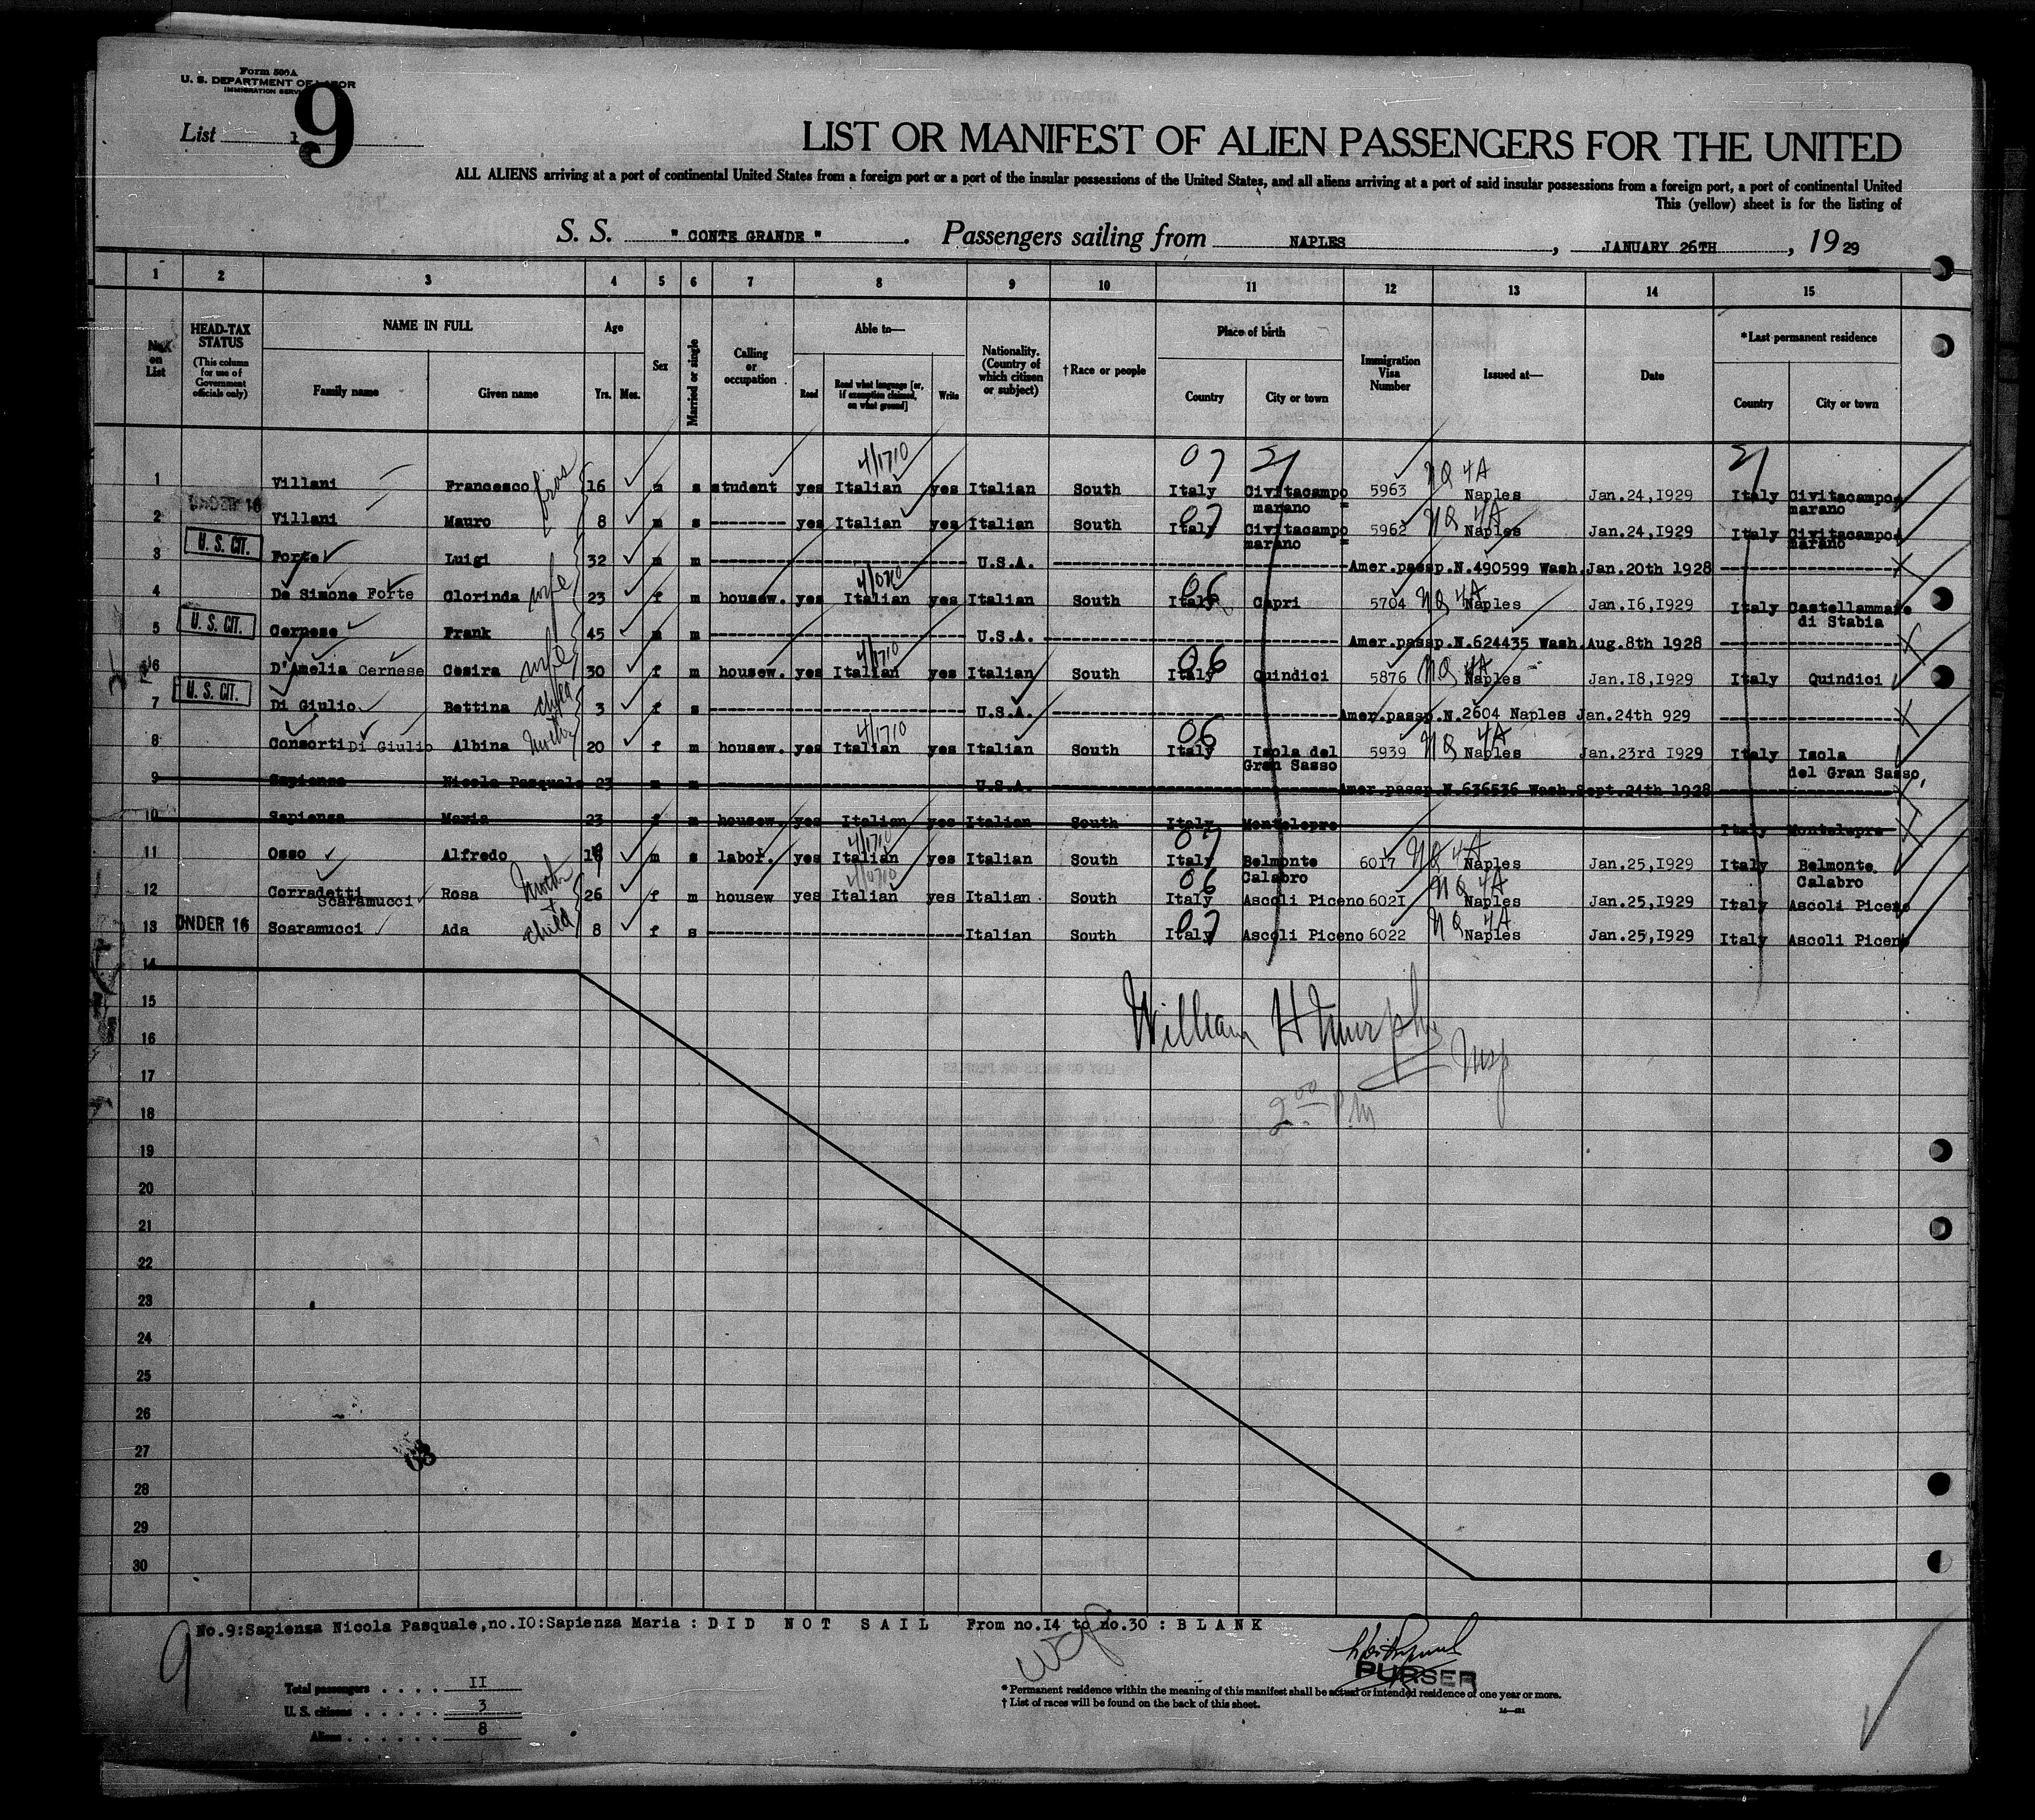 Form 500A
U. S. DEPARTMENT OF LABOR
IMMIGRATION SERVICE
List 9
LIST OR MANIFEST OF ALIEN PASSENGERS FOR THE UNITED
ALL ALIENS arriving at a port of continental United States from a foreign port or a port of the insular possessions of the United States, and all aliens arriving at a port of said insular possessions from a foreign port, a port of continental United
This (yellow) sheet is for the listing of
S. S. " CONTE GRANDE ". Passengers sailing from NAPLES, JANUARY 26TH, 1929
1 2 3 4 5 6 7 8 9 10 11 12 13 14 15
No. on List
HEAD-TAX STATUS (This column for use of Government officials only)
NAME IN FULL Family name Given name
Age Yrs. Mos.
Sex
Married or single
Calling or occupation
Able to— Read Read what language [or, if exemption claimed, on what ground] Write
Nationality. (Country of which citizen or subject)
† Race or people
Place of birth Country City or town
Immigration Visa Number
Issued at—
Date
*Last permanent residence Country City or town
4/1710 07 21 21
1 Villani Francesco 16 m s student yes Italian yes Italian South Italy Civitacampo= marano 5963 NQ 4A Naples Jan.24,1929 Italy Civitacampo= marano
2 UNDER 16 Villani Mauro 8 m s -------- yes Italian yes Italian South Italy 07 Civitacampo= marano 5962 NQ 4A Naples Jan.24,1929 Italy Civitacampo= marano
3 U. S. CIT. Forte Luigi 32 m m U.S.A. Amer.passp.N.490599 Wash.Jan.20th 1928
4 De Simone Forte Clorinda wife 23 f m housew. yes Italian yes Italian South Italy 06 Capri 5704 NQ 4A Naples Jan.16,1929 Italy Castellammare di Stabia
5 U. S. CIT. Cernese Frank 45 m m U.S.A. Amer.passp.N.624435 Wash.Aug.8th 1928
6 D'Amelia Cernese Cesira wife 30 f m housew. yes Italian 4/1710 yes Italian South Italy 06 Quindici 5876 NQ 4A Naples Jan.18,1929 Italy Quindici
7 U. S. CIT. Di Giulio Bettina child 3 f s U.S.A. Amer.passp.N.2604 Naples Jan.24th 929
8 Consorti Di Giulio Albina Mother 20 f m housew. yes Italian 4/1710 yes Italian South Italy 06 Isola del Gran Sasso 5939 NQ 4A Naples Jan.23rd 1929 Italy Isola del Gran Sasso,
9 Sapienza Nicola Pasquale 23 m m U.S.A. Amer.passp.N.636536 Wash.Sept.24th 1928
10 Sapienza Maria 23 f m housew. yes Italian yes Italian South Italy Montelepre Italy Montelepre
11 Osso Alfredo m s labor. yes Italian 4/1710 yes Italian South Italy 07 Belmonte Calabro 6017 NQ 4A Naples Jan.25,1929 Italy Belmonte Calabro
12 Corradetti Scaramucci Rosa Mother + 26 f m housew yes Italian yes Italian South Italy 06 Ascoli Piceno 6021 NQ 4A Naples Jan.25,1929 Italy Ascoli Piceno
13 UNDER 16 Scaramucci Ada child 8 f s Italian South Italy 07 Ascoli Piceno 6022 NQ 4A Naples Jan.25,1929 Italy Ascoli Piceno
14
15
William H Murphy
16
Insp
17
2 00 P.M
18
19
20
21
22
23
24
25
26
27
28
29
30
No.9:Sapienza Nicola Pasquale,no.10:Sapienza Maria : D I D N O T S A I L From no.14 to no.30 : B L A N K
9
PURSER
Total passengers . . . . II
U. S. citizens . . . . . 3
Aliens . . . . . . 8
* Permanent residence within the meaning of this manifest shall be actual or intended residence of one year or more.
† List of races will be found on the back of this sheet.